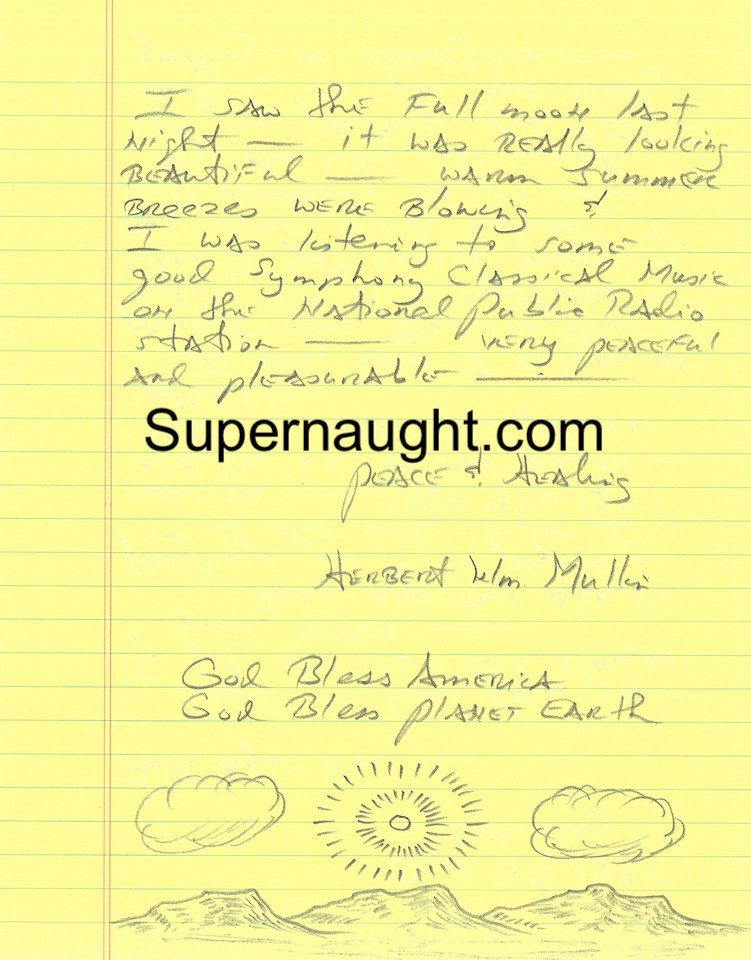 I saw the Full moon last
Night — it was REALly looking
BEAutiFul — warm Summer
Breezes were Blowing &
I was listening to some
good Symphony Classical Music
on the National Public Radio
station — very peaceful
And pleasurable —
Supernaught.com
Peace & Healing
Herbert Wm. Mullin
God Bless America
God Bless Planet Earth